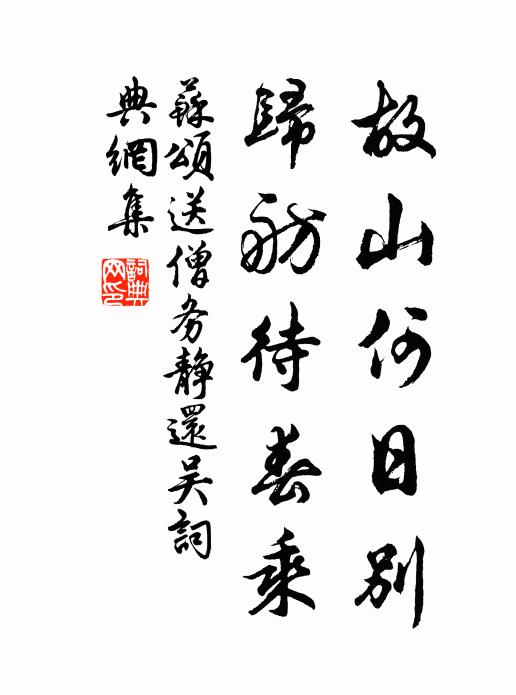 故山何日別
歸舫待春乘
蘇頌送僧务靜還吴詞
典網集
詞典
网印